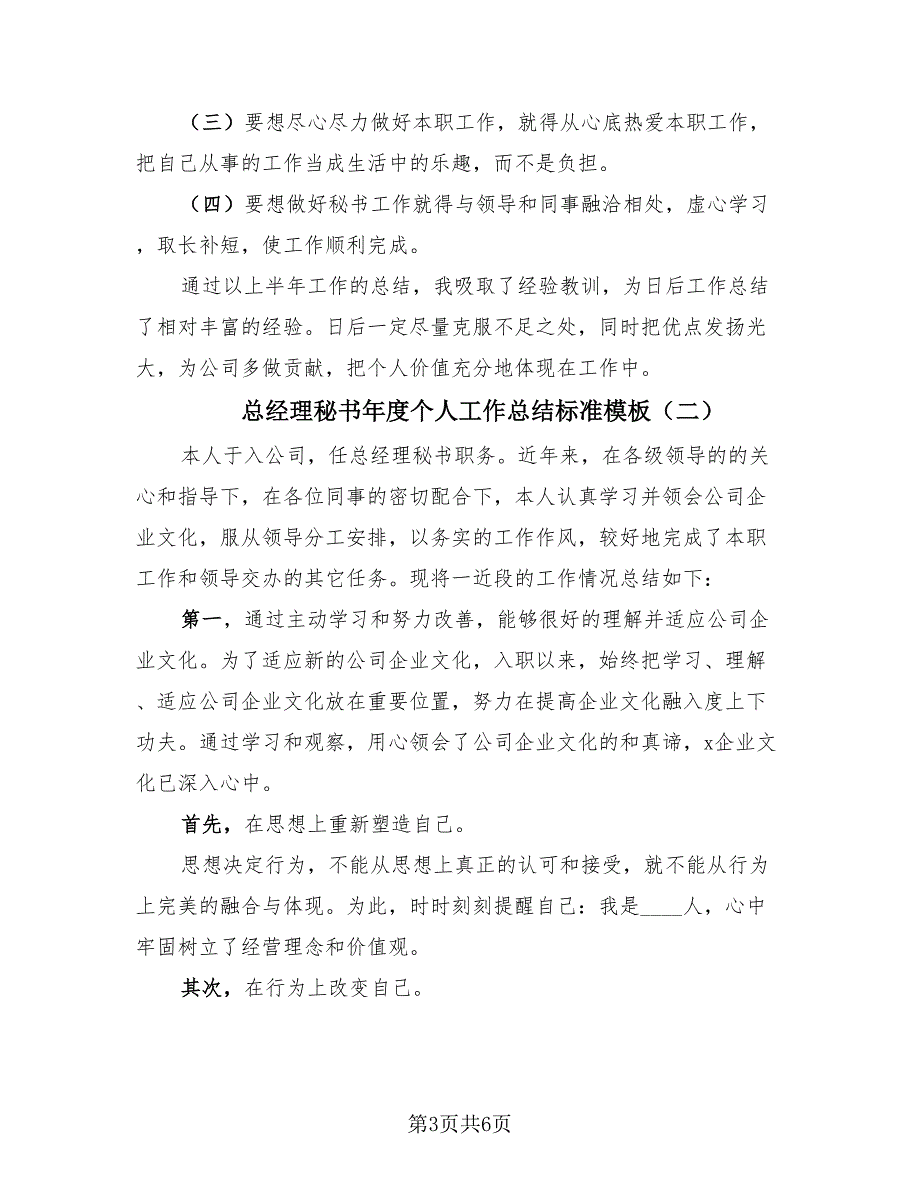 （三）要想尽心尽力做好本职工作，就得从心底热爱本职工作，
把自己从事的工作当成生活中的乐趣，而不是负担。
（四）要想做好秘书工作就得与领导和同事融洽相处，虚心学习
，取长补短，使工作顺利完成。
通过以上半年工作的总结，我吸取了经验教训，为日后工作总结
了相对丰富的经验。日后一定尽量克服不足之处，同时把优点发扬光
大，为公司多做贡献，把个人价值充分地体现在工作中。
总经理秘书年度个人工作总结标准模板（二）
本人于入公司，任总经理秘书职务。近年来，在各级领导的的关
心和指导下，在各位同事的密切配合下，本人认真学习并领会公司企
业文化，服从领导分工安排，以务实的工作作风，较好地完成了本职
工作和领导交办的其它任务。现将一近段的工作情况总结如下：
第一，通过主动学习和努力改善，能够很好的理解并适应公司企
业文化。为了适应新的公司企业文化，入职以来，始终把学习、理解
、适应公司企业文化放在重要位置，努力在提高企业文化融入度上下
功夫。通过学习和观察，用心领会了公司企业文化的和真谛，x企业文
化已深入心中。
首先，在思想上重新塑造自己。
思想决定行为，不能从思想上真正的认可和接受，就不能从行为
上完美的融合与体现。为此，时时刻刻提醒自己：我是____人，心中
牢固树立了经营理念和价值观。
其次，在行为上改变自己。
第3页共6页